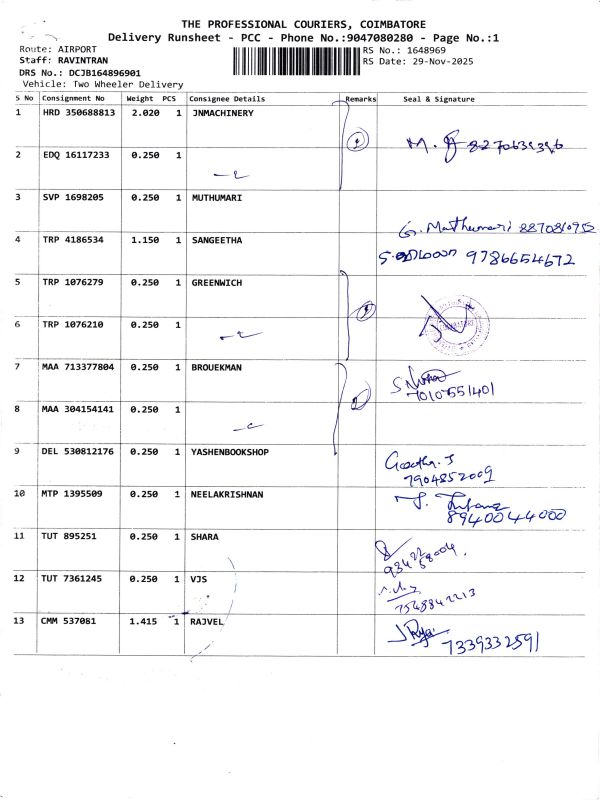 THE PROFESSIONAL COURIERS, COIMBATORE
Delivery Runsheet - PCC - Phone No.:9047080280 - Page No.:1
Route: AIRPORT RS No.: 1648969
Staff: RAVINTRAN RS Date: 29-Nov-2025
DRS No.: DCJB164896901
Vehicle: Two Wheeler Delivery
S No Consignment No Weight PCS Consignee Details Remarks Seal & Signature
1 HRD 350688813 2.020 1 JNMACHINERY
2 EDQ 16117233 0.250 1
3 SVP 1698205 0.250 1 MUTHUMARI G. Muthumari
4 TRP 4186534 1.150 1 SANGEETHA 9786654672
5 TRP 1076279 0.250 1 GREENWICH
6 TRP 1076210 0.250 1
7 MAA 713377804 0.250 1 BROUEKMAN 7010551401
8 MAA 304154141 0.250 1
9 DEL 530812176 0.250 1 YASHENBOOKSHOP Geetha. S
7904852009
10 MTP 1395509 0.250 1 NEELAKRISHNAN
8940044000
11 TUT 895251 0.250 1 SHARA
12 TUT 7361245 0.250 1 VJS
7548842213
13 CMM 537081 1.415 1 RAJVEL 7339332591